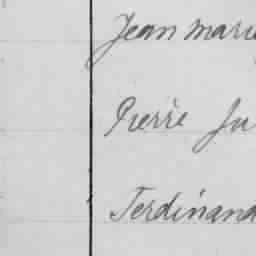 Jean marie
Pierre Ju
Ferdinand